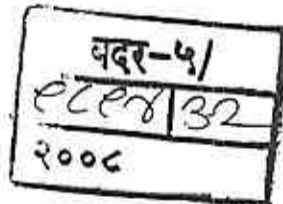 बदर-५/
९८९४ | ३२
२००८